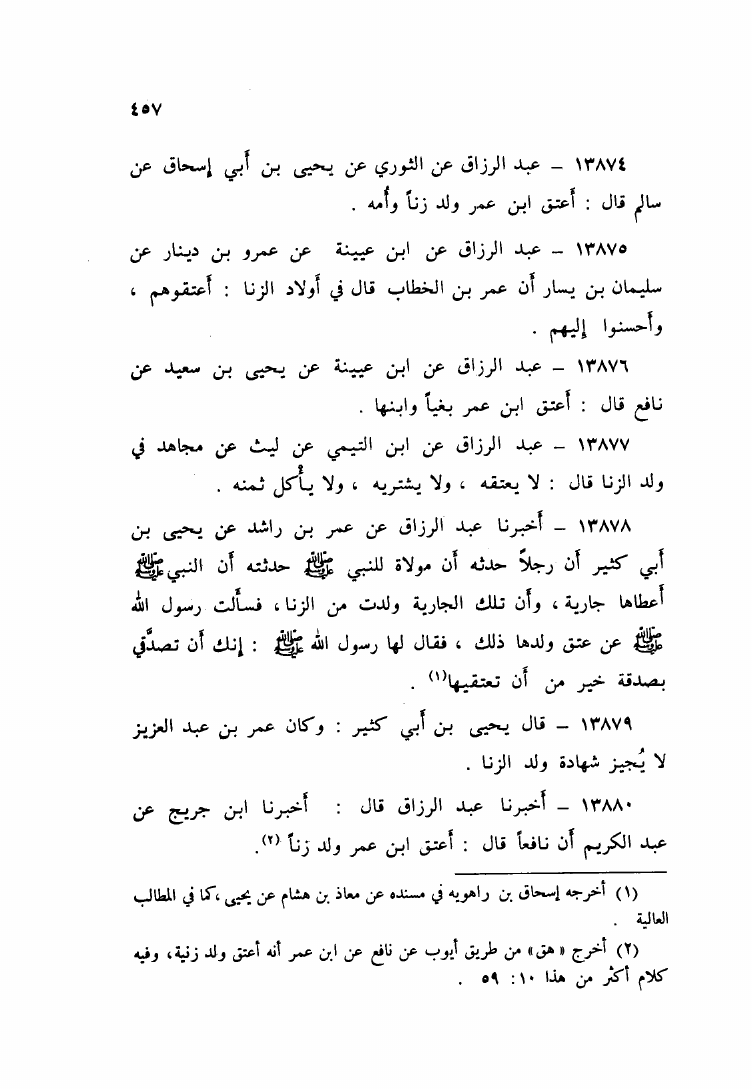 ٤٥٧
١٣٨٧٤ – عبد الرزاق عن الثوري عن يحيى بن أبي إسحاق عن
سالم قال : أعتق ابن عمر ولد زناً وأُمه .
١٣٨٧٥ – عبد الرزاق عن ابن عيينة عن عمرو بن دينار عن
سليمان بن يسار أن عمر بن الخطاب قال في أولاد الزنا : أعتقوهم ،
وأحسنوا إليهم .
١٣٨٧٦ – عبد الرزاق عن ابن عيينة عن يحيى بن سعيد عن
نافع قال : أعتق ابن عمر بغياً وابنها .
١٣٨٧٧ – عبد الرزاق عن ابن التيمي عن ليث عن مجاهد في
ولد الزنا قال : لا يعتقه ، ولا يشتريه ، ولا يأْكل ثمنه .
١٣٨٧٨ – أخبرنا عبد الرزاق عن عمر بن راشد عن يحيى بن
أبي كثير أن رجلاً حدثه أن مولاة للنبي ﷺ حدثته أن النبي ﷺ
أعطاها جارية ، وأن تلك الجارية ولدت من الزنا ، فسألت رسول الله
ﷺ عن عتق ولدها ذلك ، فقال لها رسول الله ﷺ : إنك أن تصدَّقي
بصدقة خير من أن تعتقيها(١) .
١٣٨٧٩ – قال يحيى بن أبي كثير : وكان عمر بن عبد العزيز
لا يُجيز شهادة ولد الزنا .
١٣٨٨٠ – أخبرنا عبد الرزاق قال : أخبرنا ابن جريج عن
عبد الكريم أن نافعاً قال : أعتق ابن عمر ولد زناً (٢).
(١) أخرجه إسحاق بن راهويه في مسنده عن معاذ بن هشام عن يحيى ،كما في المطالب
العالية .
(٢) أخرج « هق» من طريق أيوب عن نافع عن ابن عمر أنه أعتق ولد زنية، وفيه
كلام أكثر من هذا ١٠: ٥٩ .